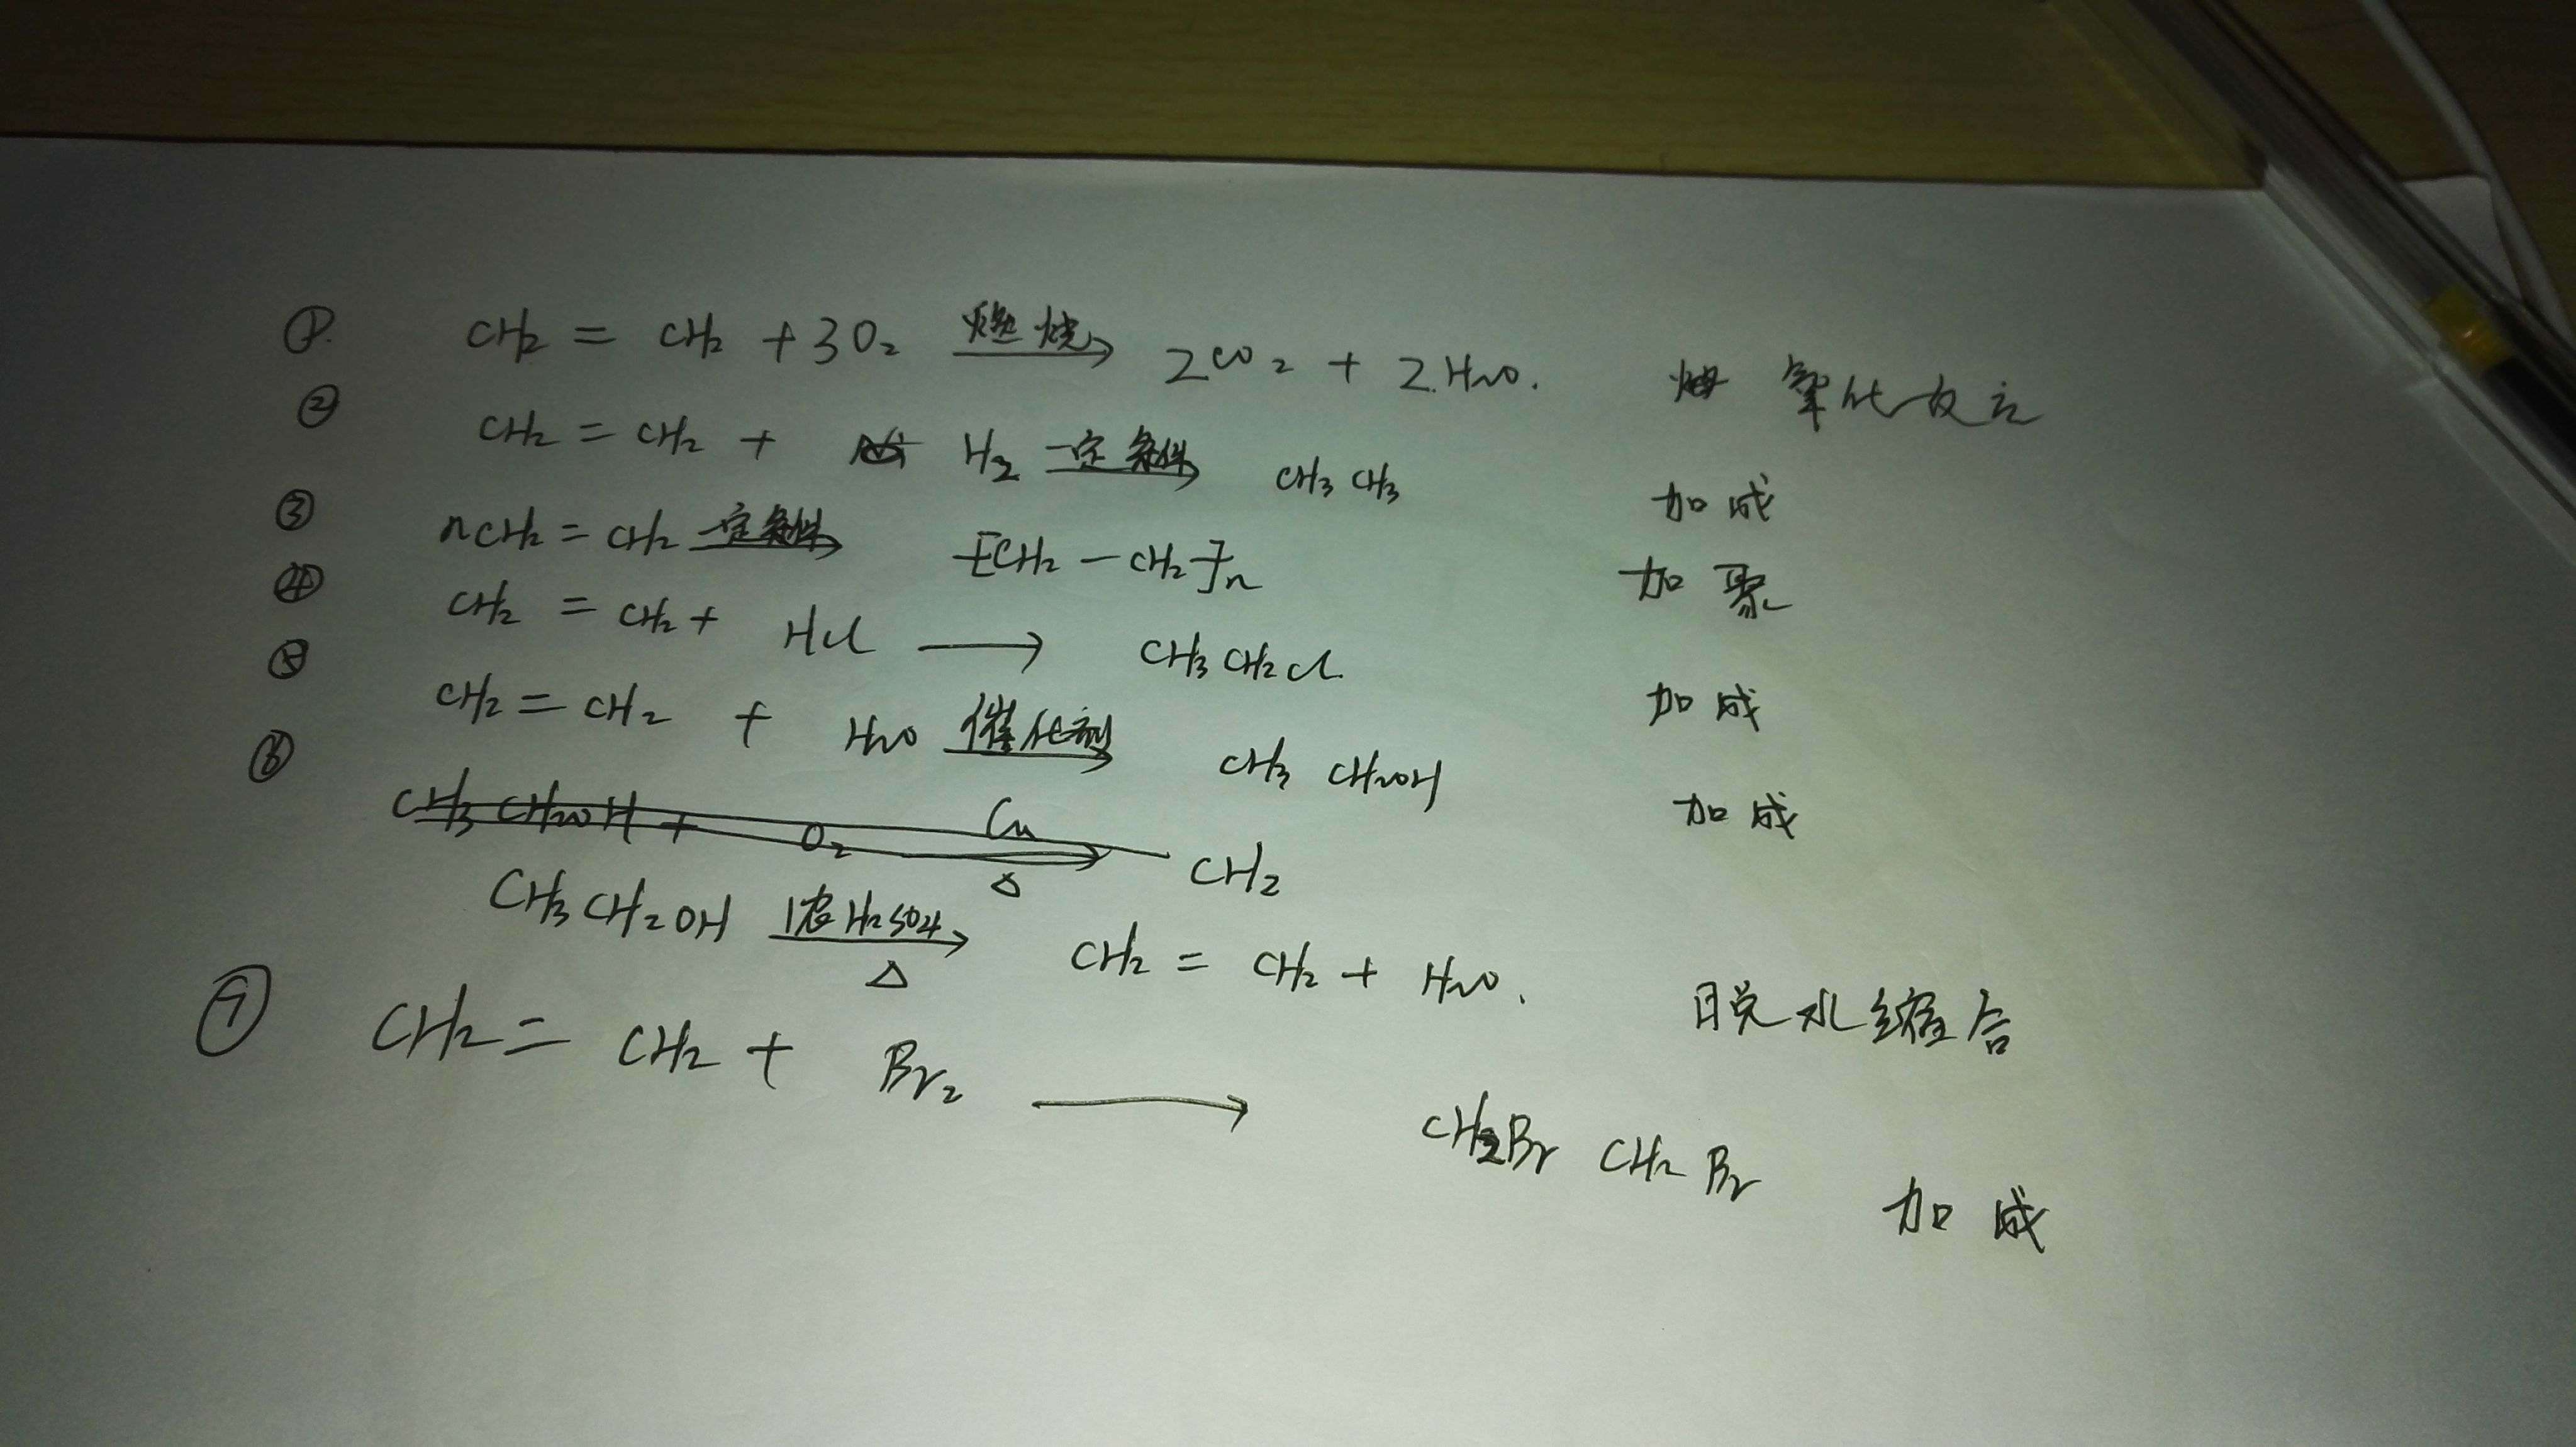 ① CH₂ = CH₂ + 3O₂ 燃烧→ 2CO₂ + 2H₂O. 氧化反应
② CH₂ = CH₂ + H₂ 一定条件→ CH₃CH₃ 加成
③ nCH₂ = CH₂ 一定条件→ -[CH₂-CH₂]-n 加聚
④ CH₂ = CH₂ + HCl → CH₃CH₂Cl 加成
⑤ CH₂ = CH₂ + H₂O 催化剂→ CH₃CH₂OH 加成
⑥ CH₃CH₂OH + O₂ Cu→ △ CH₂
CH₃CH₂OH 浓H₂SO₄→ △ CH₂ = CH₂ + H₂O. 脱水缩合
⑦ CH₂ = CH₂ + Br₂ → CH₂Br CH₂Br 加成